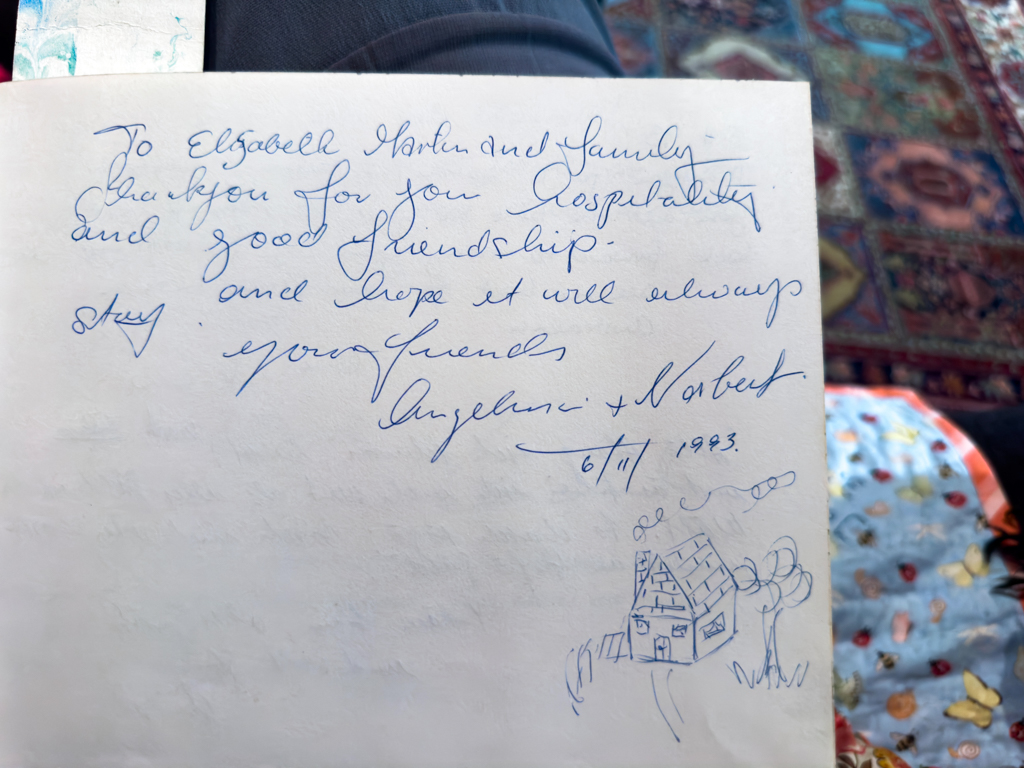 To Elizabeth Martin and family
thankyou for you hospitality
and good friendship.
and hope it will always
stay.
your friends
Angelina + Norbert.
6/11/ 1993.